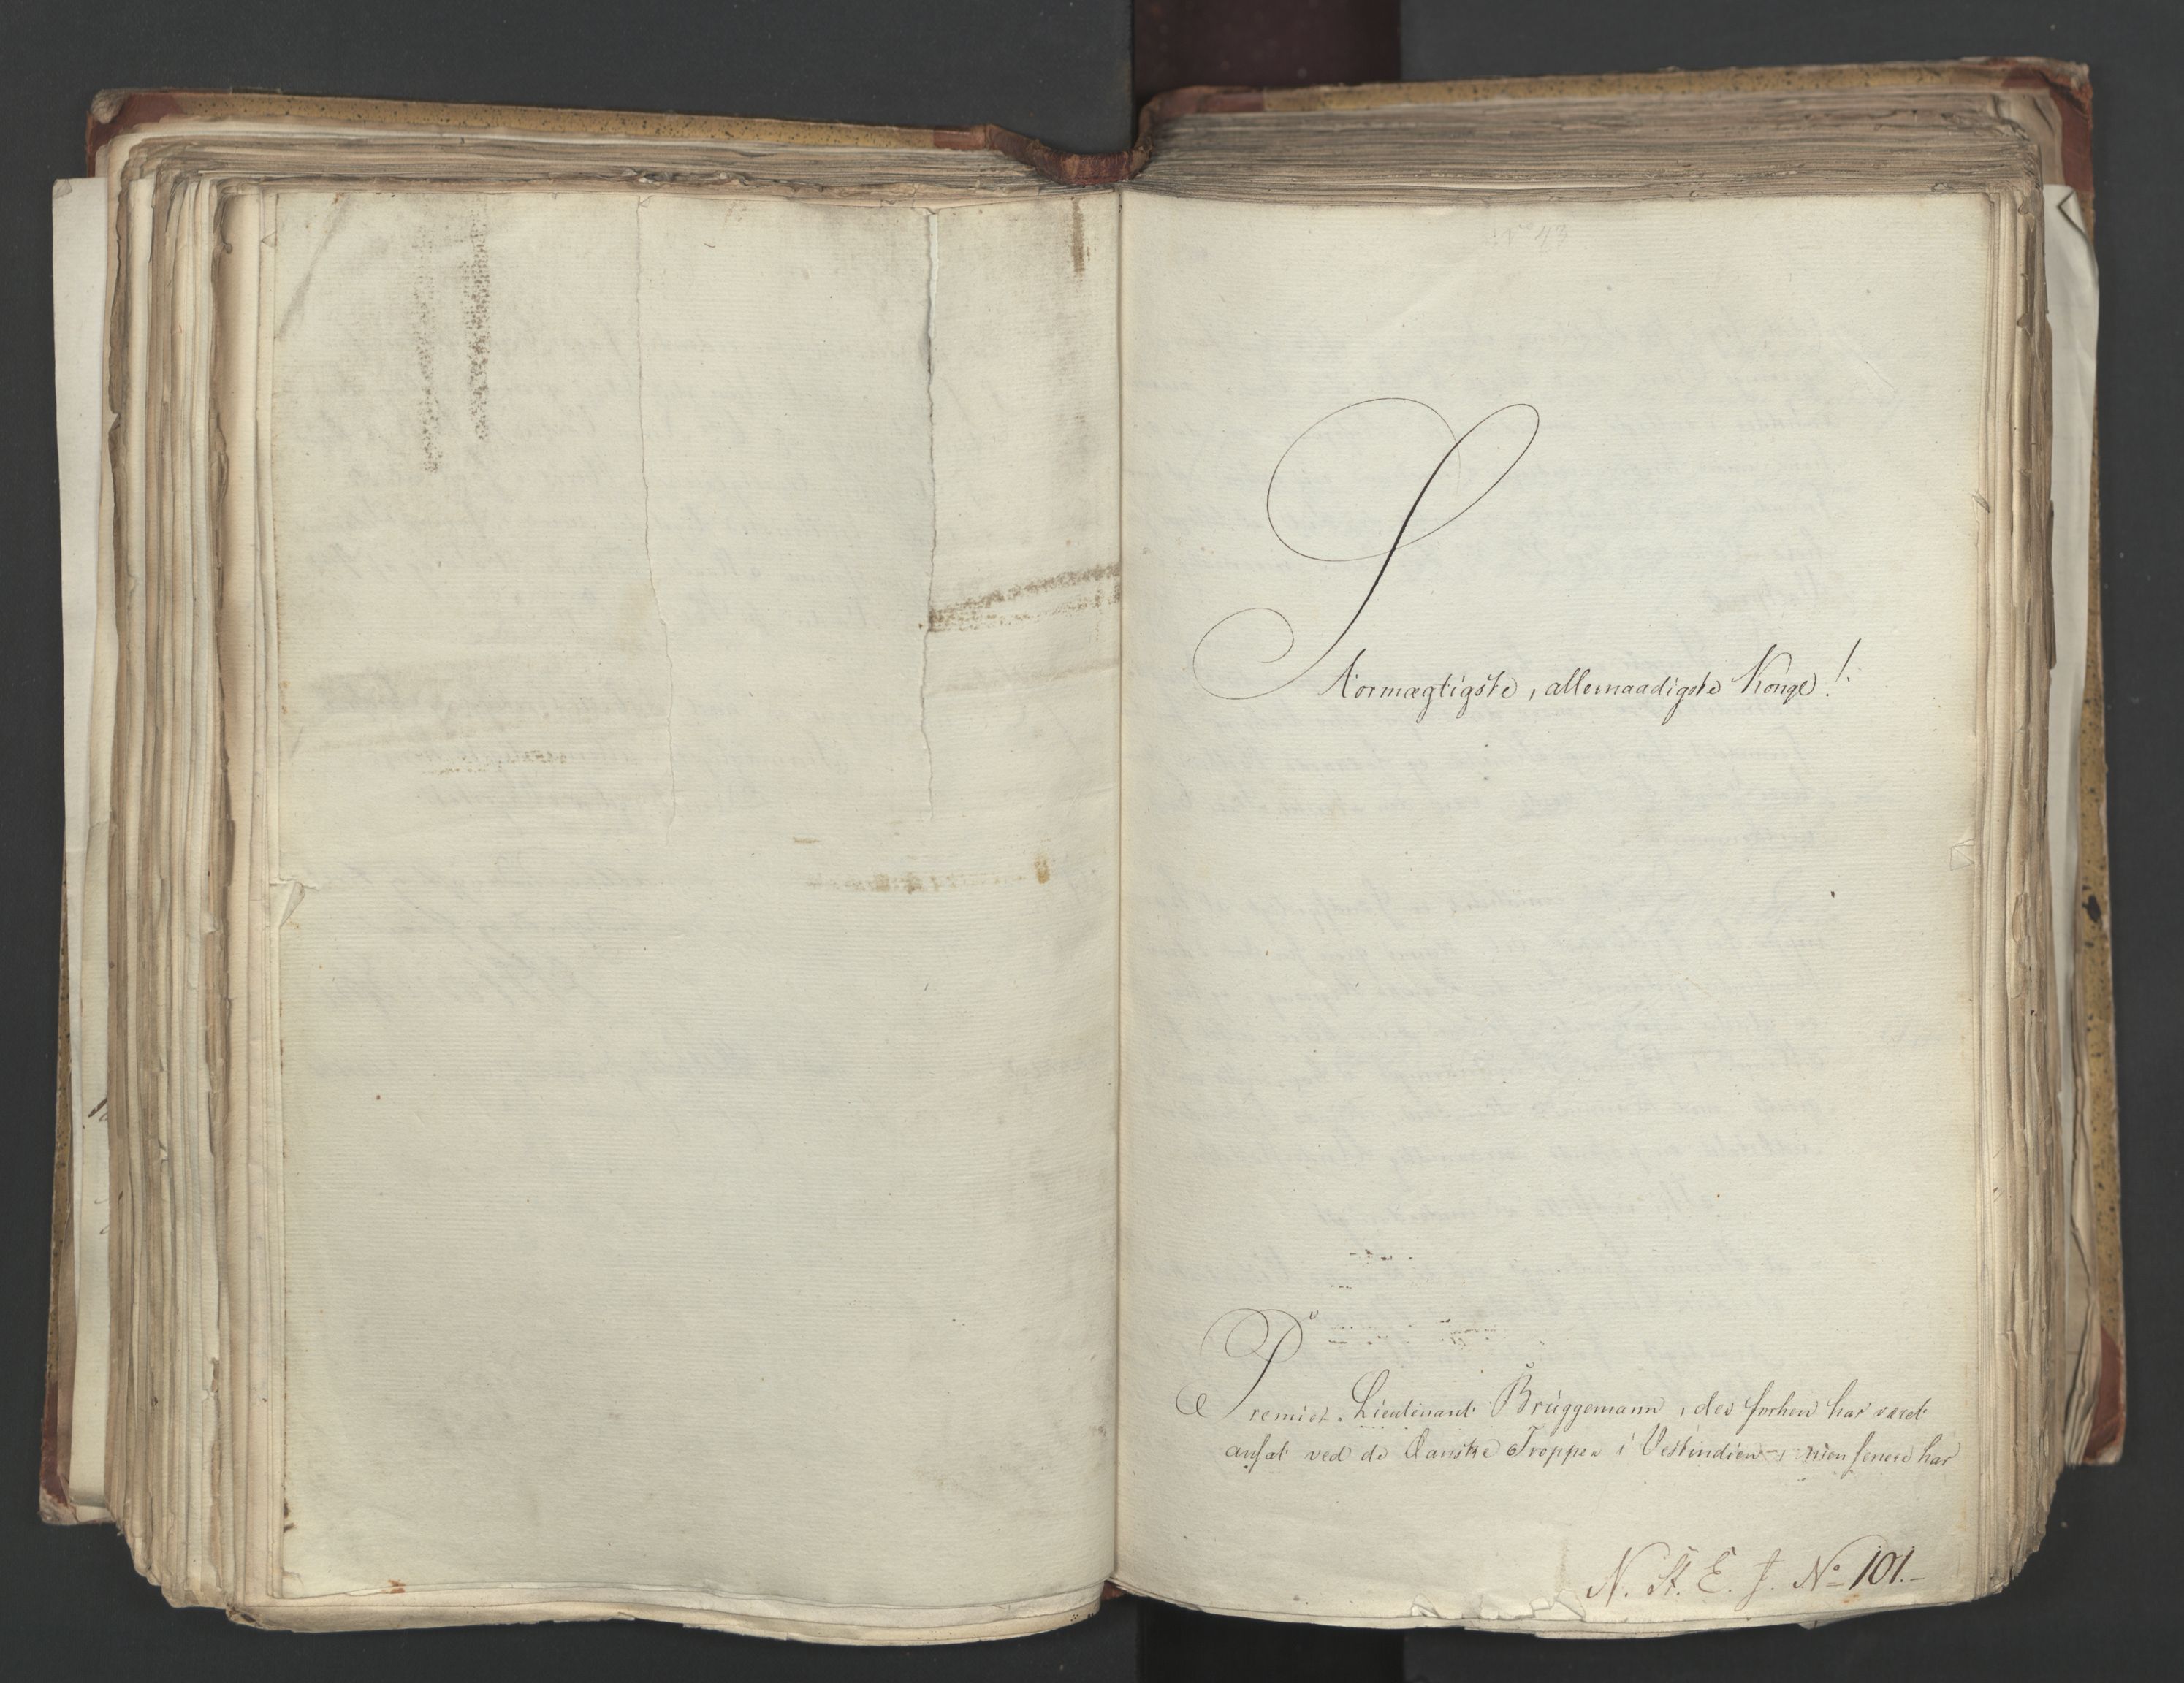 No 43
Stormægtigste, allernaadigste Konge!
Premier-Lieutinant Brüggemann, der forhen har været
ansat ved de Danske Tropper i Vestindien, men senere har
N. St. E. J. No 101.